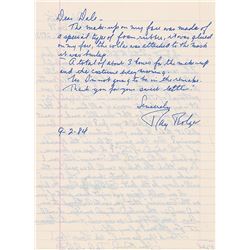 Dear Dale -
The make-up on my face was made of
a special type of foam rubber, it was glued
on my face, the was attached to the mask
it was burlap.
A total of about 3 hours for the make-up
and the costume every morning.
No I'm not going to be in the remake.
Thank you for your sweet letter.
Sincerely
Ray Bolger
9-2-84